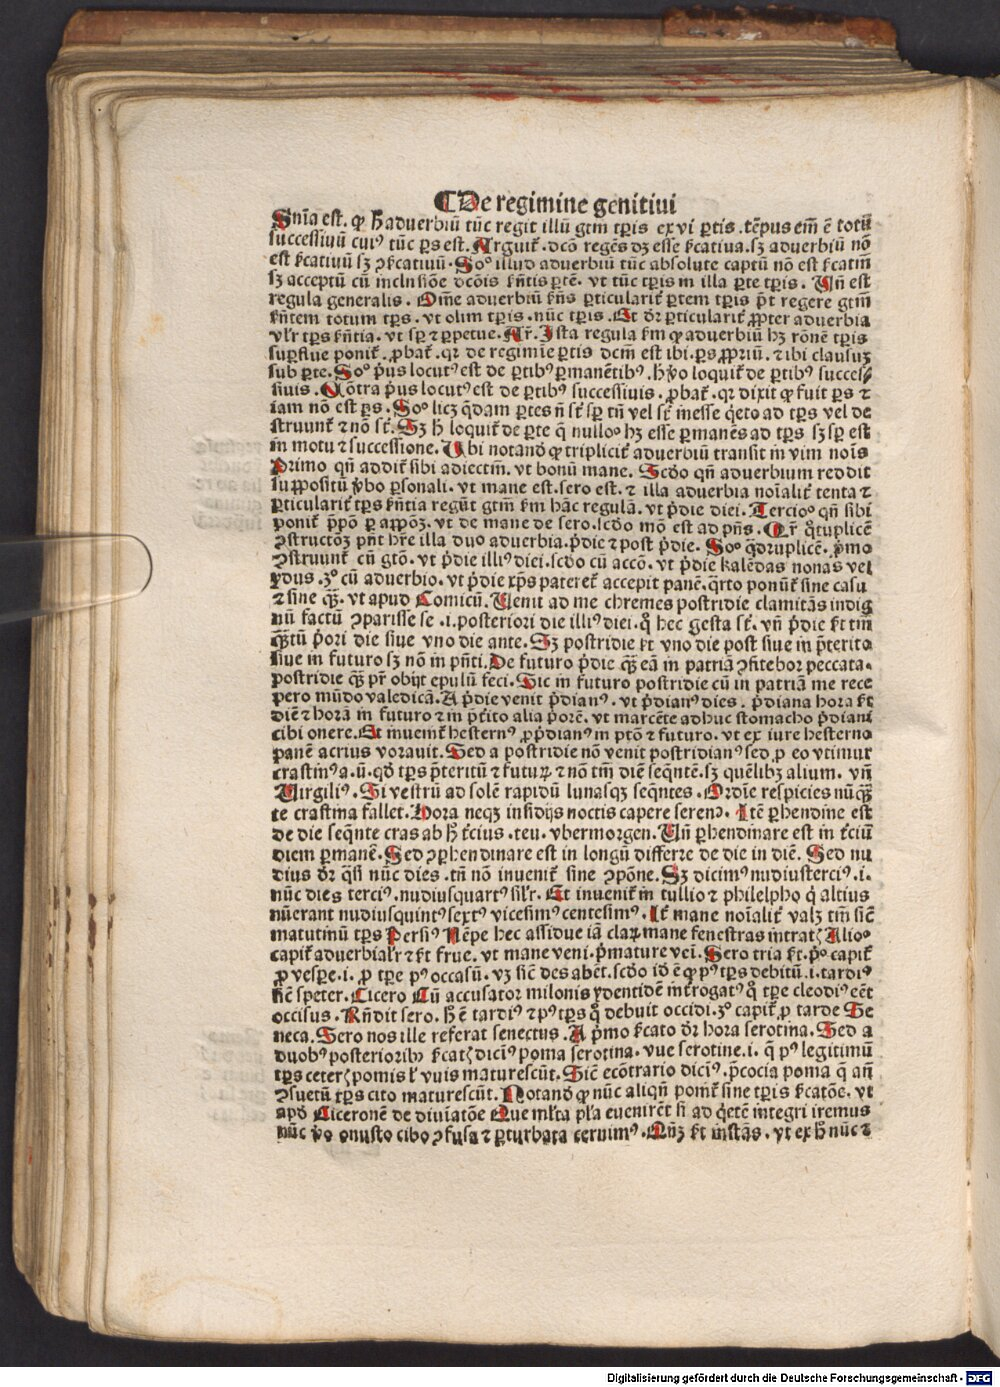 De regimine genitiui
Snīa est. ꝙ ħ aduerbiū tūc regit illū gtm̄ tꝑis ex vi ꝑtis. tēpus em̄ ē totū
successiuū cuiꝰ tūc ꝑs est. Arguit̄. dcō regēs dꝫ esse ẜcatiua. sꝫ aduerbiū nō
est ẜcatiuū sꝫ ꝯẜcatiuū. Soº illud aduerbiū tūc absolute captū nō est ẜcatiū
sꝫ acceptū cū inclusiōe dcōis ẜn̄tis ꝑtē. vt tūc tꝑis in illa ꝑte tꝑis. Vn̄ est
regula generalis. Om̄e aduerbiū ẜn̄s ꝑticularit̄ ꝑtem tꝑis p̄t regere gtm̄
ẜn̄tem totum tꝑs. vt olim tꝑis. nūc tꝑis. Et dr̄ ꝑticularit̄ ꝓpter aduerbia
vl'r tꝑs ẜn̄tia. vt sꝑ ⁊ ꝑpetue. Ar̄. Ista regula ẜm ꝙ aduerbiū hꝫ rōnē tꝑis
suꝑflue ponit̄. ꝓbat̄. qr de regimīe ꝑtis dcm̄ est ibi. ꝑs ꝓpriū. ⁊ ibi clausuꝫ
sub ꝑte. Soº p̄us locutꝰ est de ꝑtibꝰ ꝑmanētibꝰ. h̄ v̄o loquit̄ de ꝑtibꝰ succes/
siuis. Cōtra p̄us locutꝰ est de ꝑtibꝰ successiuis. ꝓbat̄. qr dixit ꝙ fuit ꝑs ⁊
iam nō est ꝑs. Soº licꝫ q̄dam ꝑtes n̄ st̄ sꝑ tn̄ vel st̄ inesse q̄eto ad tꝑs vel de
struunt̄ ⁊ nō st̄. Sꝫ ħ loquit̄ de ꝑte q̄ nulloº hꝫ esse ꝑmanēs ad tꝑs sꝫ sꝑ est
in motu ⁊ successione. Vbi notand̄ ꝙ triplicit̄ aduerbiū transit in vim noīs
Primo qn̄ addit̄ sibi adiectm̄. vt bonū mane. Scd̄o qn̄ aduerbium reddit
suppositū v̄bo ꝑsonali. vt mane est. sero est. ⁊ illa aduerbia noīalit̄ tenta ⁊
ꝑticularit̄ tꝑs ẜn̄tia regūt gtm̄ ẜm hāc regulā. vt p̄die diei. Tercioº qn̄ sibi
ponit̄ p̄pō ꝑ appōꝫ. vt de mane de sero. scd̄o mō est ad pn̄s. Qr̄ q̄tuplicē
ꝯstructōꝫ pn̄t hr̄e illa duo aduerbia. p̄die ⁊ post p̄die. Soº q̄druplicē. p̄mo
ꝯstruunt̄ cū gtō. vt p̄die illiꝰ diei. scd̄o cū accō. vt p̄die kalēdas nonas vel
ydus. 3º cū aduerbio. vt p̄die xp̄s pateret̄ accepit panē. q̄rto ponūt̄ sine casu
⁊ sine qꝫ. vt apud Comicū. Uenit ad me chremes postridie clamitās indig
nū factū ꝯparisse se. i. posteriori die illiꝰ diei. q̄ hec gesta st̄. vn̄ p̄die ẜt tm̄
qꝫtū p̄ori die siue vno die ante. Sꝫ postridie ẜt vno die post siue in p̄terito
siue in futuro sꝫ nō in pn̄ti. De futuro p̄die qꝫ eā in patriā ꝯfitebor peccata.
postridie qꝫ pr̄ obijt epulū feci. Sic in futuro postridie cū in patriā me rece
pero mūdo valedicā. A p̄die venit p̄dianꝰ. vt p̄dianꝰ dies. p̄diana hora ẜt
diē ⁊ horā in futuro ⁊ in p̄t̄ito alia p̄orē. vt marcēte adhuc stomacho p̄diani
cibi onere. Et inuenit̄ hesternꝰ ꝓ p̄dianꝰ in ptō ⁊ futuro. vt ex iure hesterno
panē acrius vorauit. Sed a postridie nō venit postridianꝰ sed ꝓ eo vtimur
crastinꝰ a. ū. qd̄ tꝑs p̄teritū ⁊ futuꝝ ⁊ nō tm̄ diē seqn̄tē. sꝫ quēlibꝫ alium. vn̄
Uirgiliꝰ. Si vestrū ad solē rapidū lunasqꝫ seqn̄tes. Ordīe respicies nūqꝫ
te crastina fallet. Hora neqꝫ insidijs noctis capere serenꝫ. Itē ꝑhendine est
de die seqn̄te cras ab ħ t̄cius. teu. vbermorgen. Vn̄ ꝑhendinare est in t̄ciū
diem ꝑmanē. Sed ꝯꝑhendinare est in longū differre de die in diē. Sed nu
dius dr̄ q̄si nūc dies. tn̄ nō inuenit̄ sine ꝯpōne. Sꝫ dicimꝰ nudiusterciꝰ. i.
nūc dies terciꝰ. nudiusquartꝰ sil'r. Et inuenit̄ in tullio ⁊ philelpho q̄ altius
nūerant nudiusquintꝰ sextꝰ vicesimꝰ centesimꝰ. It̄ mane noīalit̄ valꝫ tm̄ sicē
matutinū tꝑs Persiꝰ Nēpe hec assidue iā claꝝ mane fenestras intrat. Alioº
capit̄ aduerbial'r ⁊ ẜt frue. vt mane veni. p̄mature vei. Sero tria ẜt. p̄º capit̄
ꝓ vesꝑe. i. ꝓ tꝑe pꝰ occasū. vꝫ sicē des abēt. scd̄o id ē ꝙ pꝰ tꝑs debitū. i. tardiꝰ
sicē speter. Cicero Cū accusator milonis ydentidē int̄rogatꝰ q̄ tꝑe cleodiꝰ eēt
occisus. Rn̄dit sero. h̄ ē tardiꝰ ⁊ pꝰ tꝑs q̄ debuit occidi. 3º capit̄ ꝓ tarde Se
neca. Sero nos ille referat senectus. A p̄mo ẜcato dr̄ hora serotina. Sed a
duobꝰ posteriorib ẜcatꝭ dicim̄ꝰ poma serotina. vue serotine. i. q̄ pꝰ legitimū
tꝑs ceterꝭ pomis ł vuis maturescūt. Sicē ecōtrario dicim̄ꝰ. p̄cocia poma q̄ an̄
ꝯsuetū tꝑs cito maturescūt. Notand̄ ꝙ nūc aliqn̄ ponit̄ sine tꝑis ẜcatōe. vt
apd̄ Ciceronē de diuīatōe Que ml'ta pl'a euenirēt si ad q̄etē integri iremus
nūc v̄o onusto cibo ꝯfusa ⁊ ꝑturbata cernimꝰ. Qn̄qꝫ ẜt instās. vt ex ħ nūc ⁊
Digitalisierung gefördert durch die Deutsche Forschungsgemeinschaft - DFG